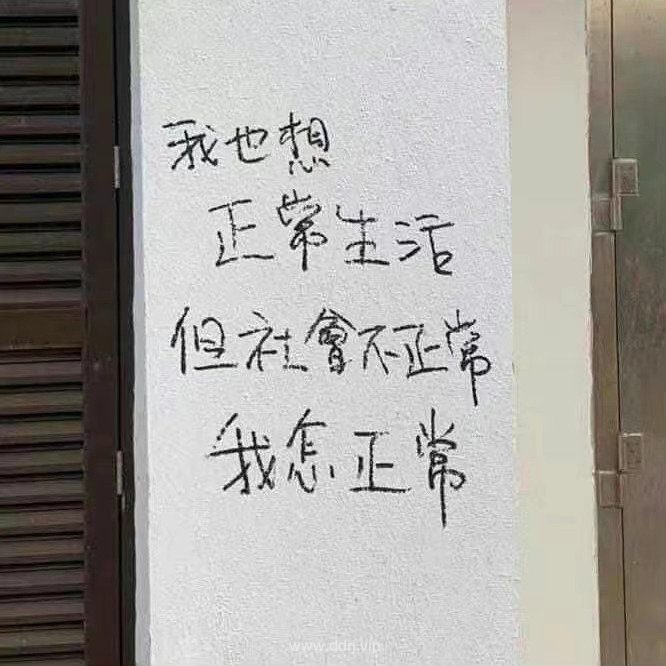 我也想
正常生活
但社會不正常
我怎正常
www.ddnj.vip